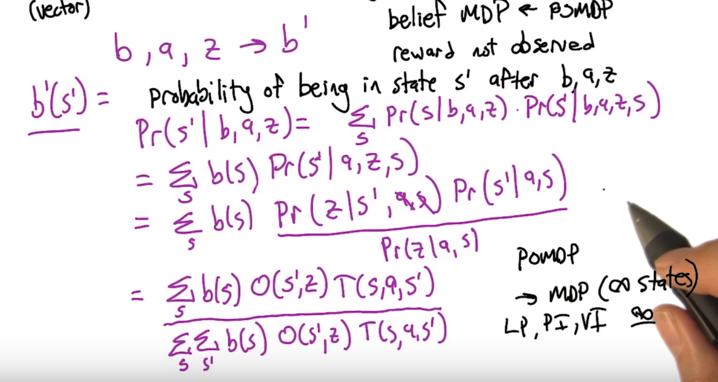 (vector)
belief MDP ← POMDP
b, a, z → b'
reward not observed
b'(s') = probability of being in state s' after b,a,z
Pr(s'|b,a,z) = Σ_s Pr(s|b,a,z) · Pr(s'|b,a,z,s)
= Σ_s b(s) Pr(s'|a,z,s)
= Σ_s b(s) Pr(z|s',a,s) Pr(s'|a,s)
Pr(z|a,s)
= Σ_s b(s) O(s',z) T(s,a,s')
Σ_s Σ_s' b(s) O(s',z) T(s,a,s')
POMDP
→ MDP (∞ states)
LP, PI, VI ∞